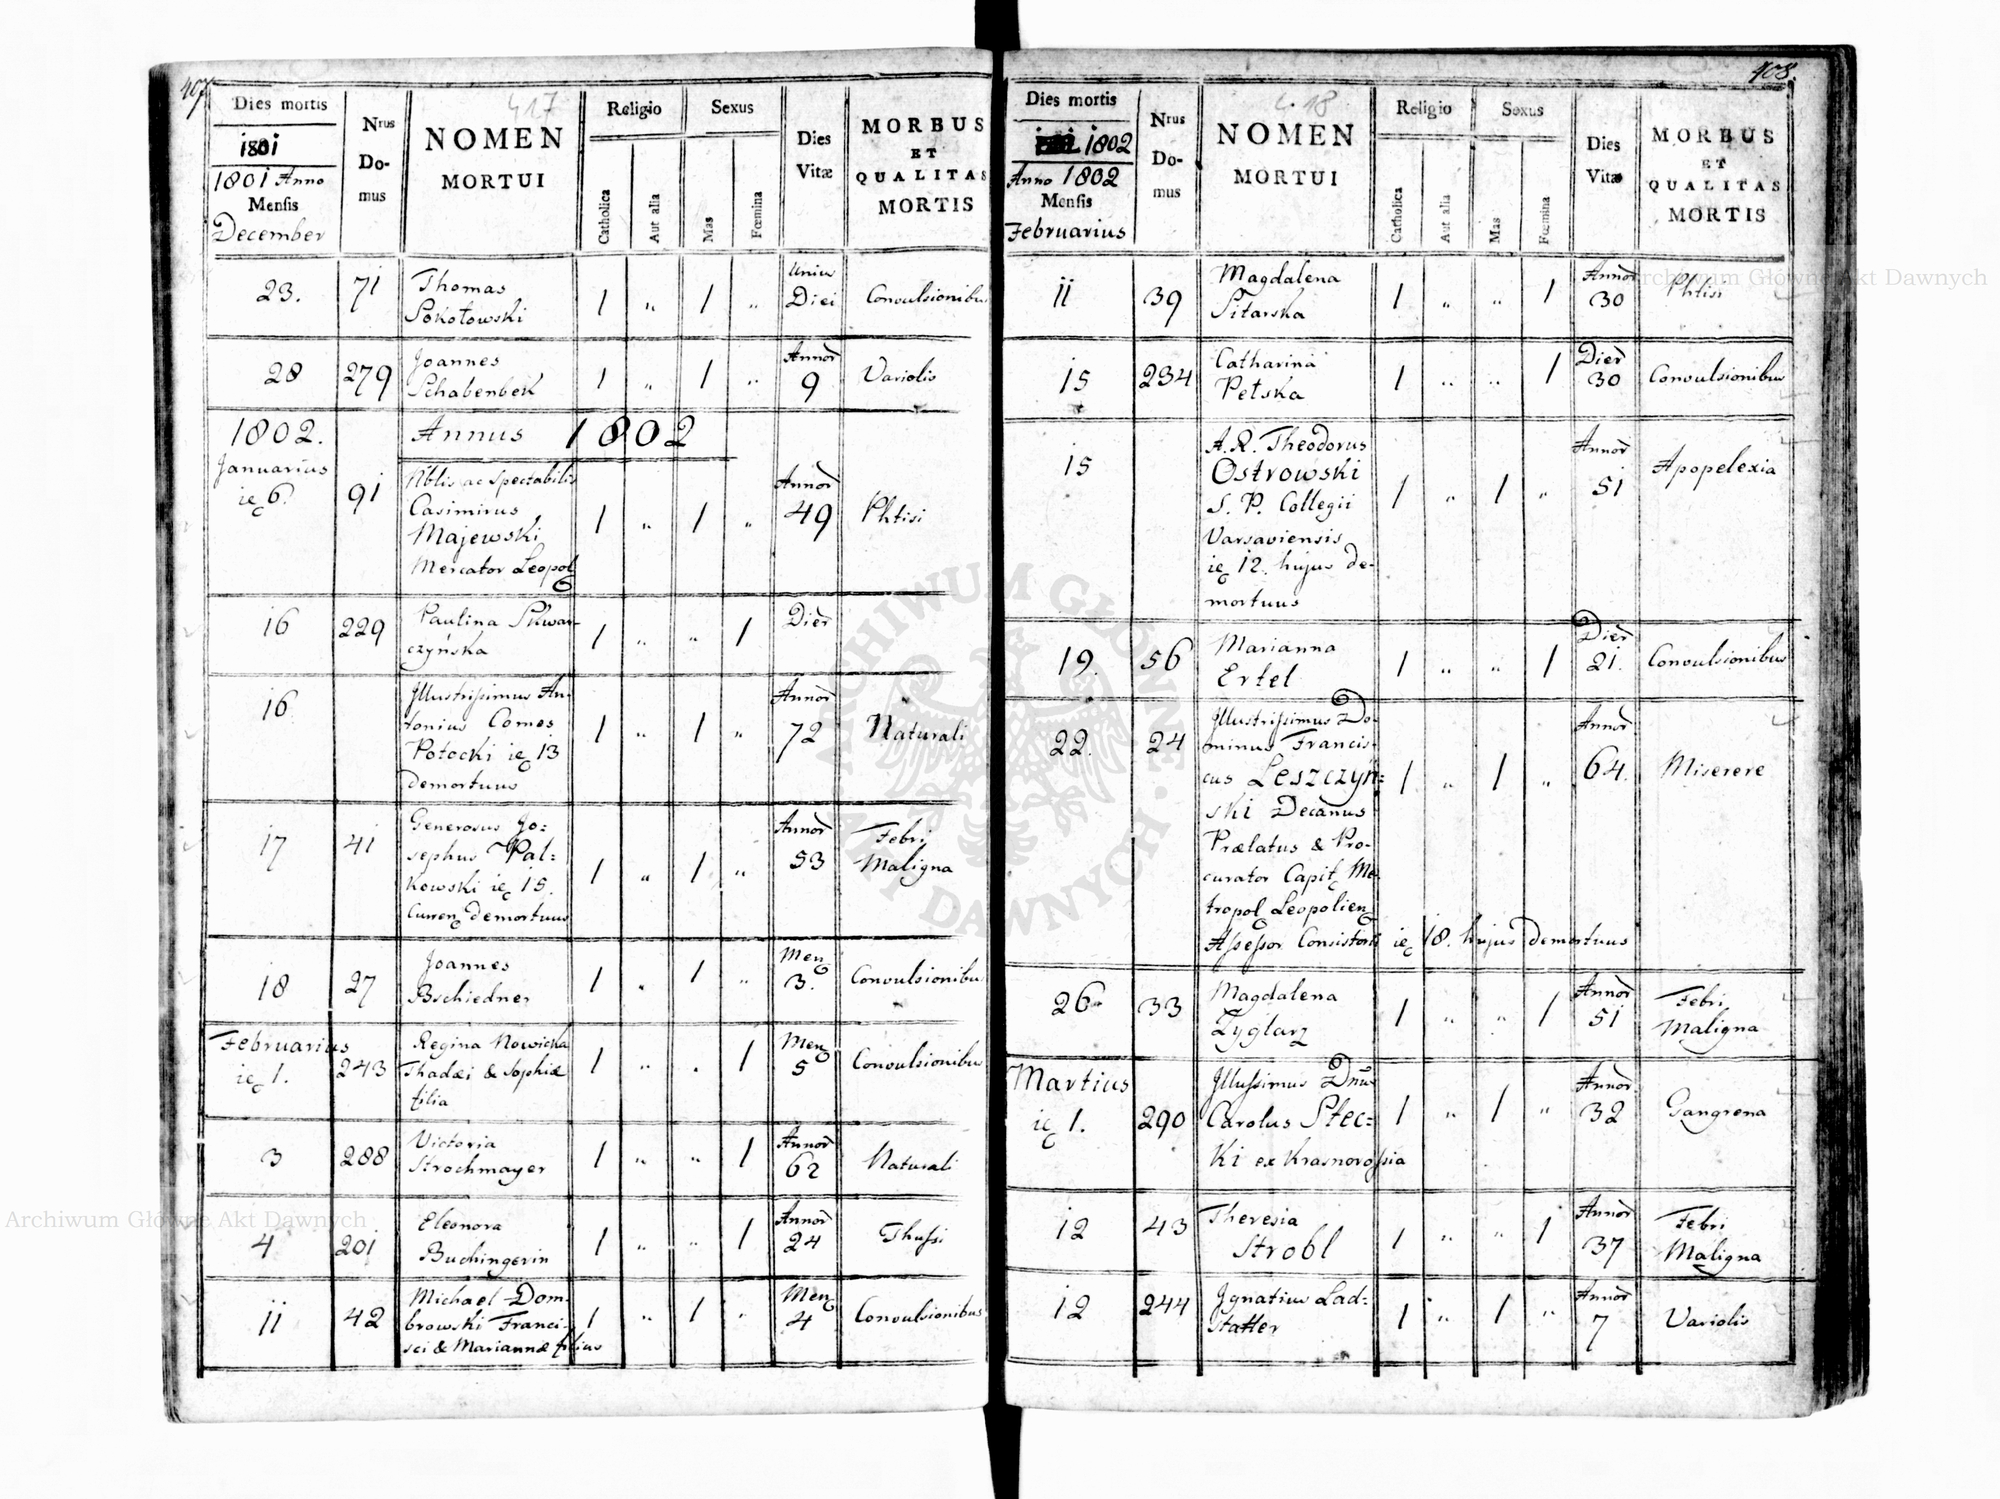 407
417
Dies mortis
1801
1801 Anno
Mensis
December
Nrus
Do-
mus
NOMEN
MORTUI
Religio
Catholica
Aut alia
Sexus
Mas
Fœmina
Dies
Vitæ
MORBUS
ET
QUALITAS
MORTIS
23.
71
Thomas
Sokołowski
1 „ 1 „
Unius
Diei
Convulsionibus
28
279
Joannes
Schabenbek
1 „ 1 „
Annor
9
Variolis
1802.
Annus 1802
Januarius
ie 6.
91
Nblis ac Spectabilis
Casimirus
Majewski
Mercator Leopol
1 „ 1 „
Annor
49
Phtisi
16
229
Paulina Skwar-
czyńska
1 „ „ 1
Dier
16
Illustrissimus An-
tonius Comes
Potocki ie 13
demortuus
1 „ 1 „
Annor
72
Naturali
17
41
Generosus Jo=
sephus Pal=
kowski ie 15.
Curren demortuus
1 „ 1 „
Annor
53
Febri
Maligna
18
27
Joannes
Bschiedner
1 „ 1 „
Men
3.
Convulsionibus
Februarius
ie 1.
243
Regina Nowicka
Thadæi & Sophiæ
filia
1 „ „ 1
Men
5
Convulsionibus
3
288
Victoria
Strochmayer
1 „ „ 1
Annor
62
Naturali
4
201
Eleonora
Buchingerin
1 „ „ 1
Annor
24
Thussi
11
42
Michael Dom-
browski Franci-
sci & Mariannæ filius
1 „ 1 „
Men
4
Convulsionibus
408.
418
Dies mortis
1802
Anno 1802
Mensis
Februarius
Nrus
Do-
mus
NOMEN
MORTUI
Religio
Catholica
Aut alia
Sexus
Mas
Fœmina
Dies
Vitæ
MORBUS
ET
QUALITAS
MORTIS
11
39
Magdalena
Sitarska
1 „ „ 1
Annor
30
Phtisi
15
234
Catharina
Petska
1 „ „ 1
Dier
30
Convulsionibus
15
A. R. Theodorus
Ostrowski
S. P. Collegii
Varsaviensis
ie 12. hujus de-
mortuus
1 „ 1 „
Annor
51
Apopelexia
19.
56
Marianna
Ertel
1 „ „ 1
Dier
21.
Convulsionibus
22.
24
Illustrissimus Do-
minus Francis-
cus Leszczyń=
ski Decanus
Prælatus & Pro-
curator Capit Me-
tropol Leopolien
Assessor Consistorii ie 18. hujus demortuus
1 „ 1 „
Annor
64.
Miserere
26
33
Magdalena
Zyglarz
1 „ „ 1
Annor
51
Febri
Maligna
Martius
ie 1.
290
Illussimus Dnus
Carolus Stec=
ki ex Krasnorossia
1 „ 1 „
Annor
32
Gangrena
12
43
Theresia
Strobl
1 „ „ 1
Annor
37
Febri
Maligna
12
244
Ignatius Lad=
statter
1 „ 1 „
Annor
7
Variolis
Archiwum Główne Akt Dawnych
Archiwum Główne Akt Dawnych
ARCHIWUM GŁÓWNE AKT DAWNYCH